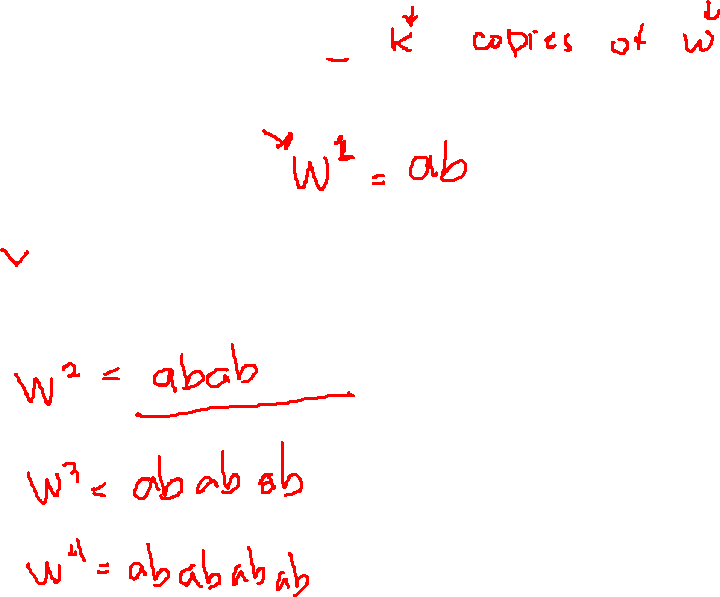 - k copies of w
w¹ = ab
w² = abab
w³ = ab ab ab
w⁴ = ab ab ab ab